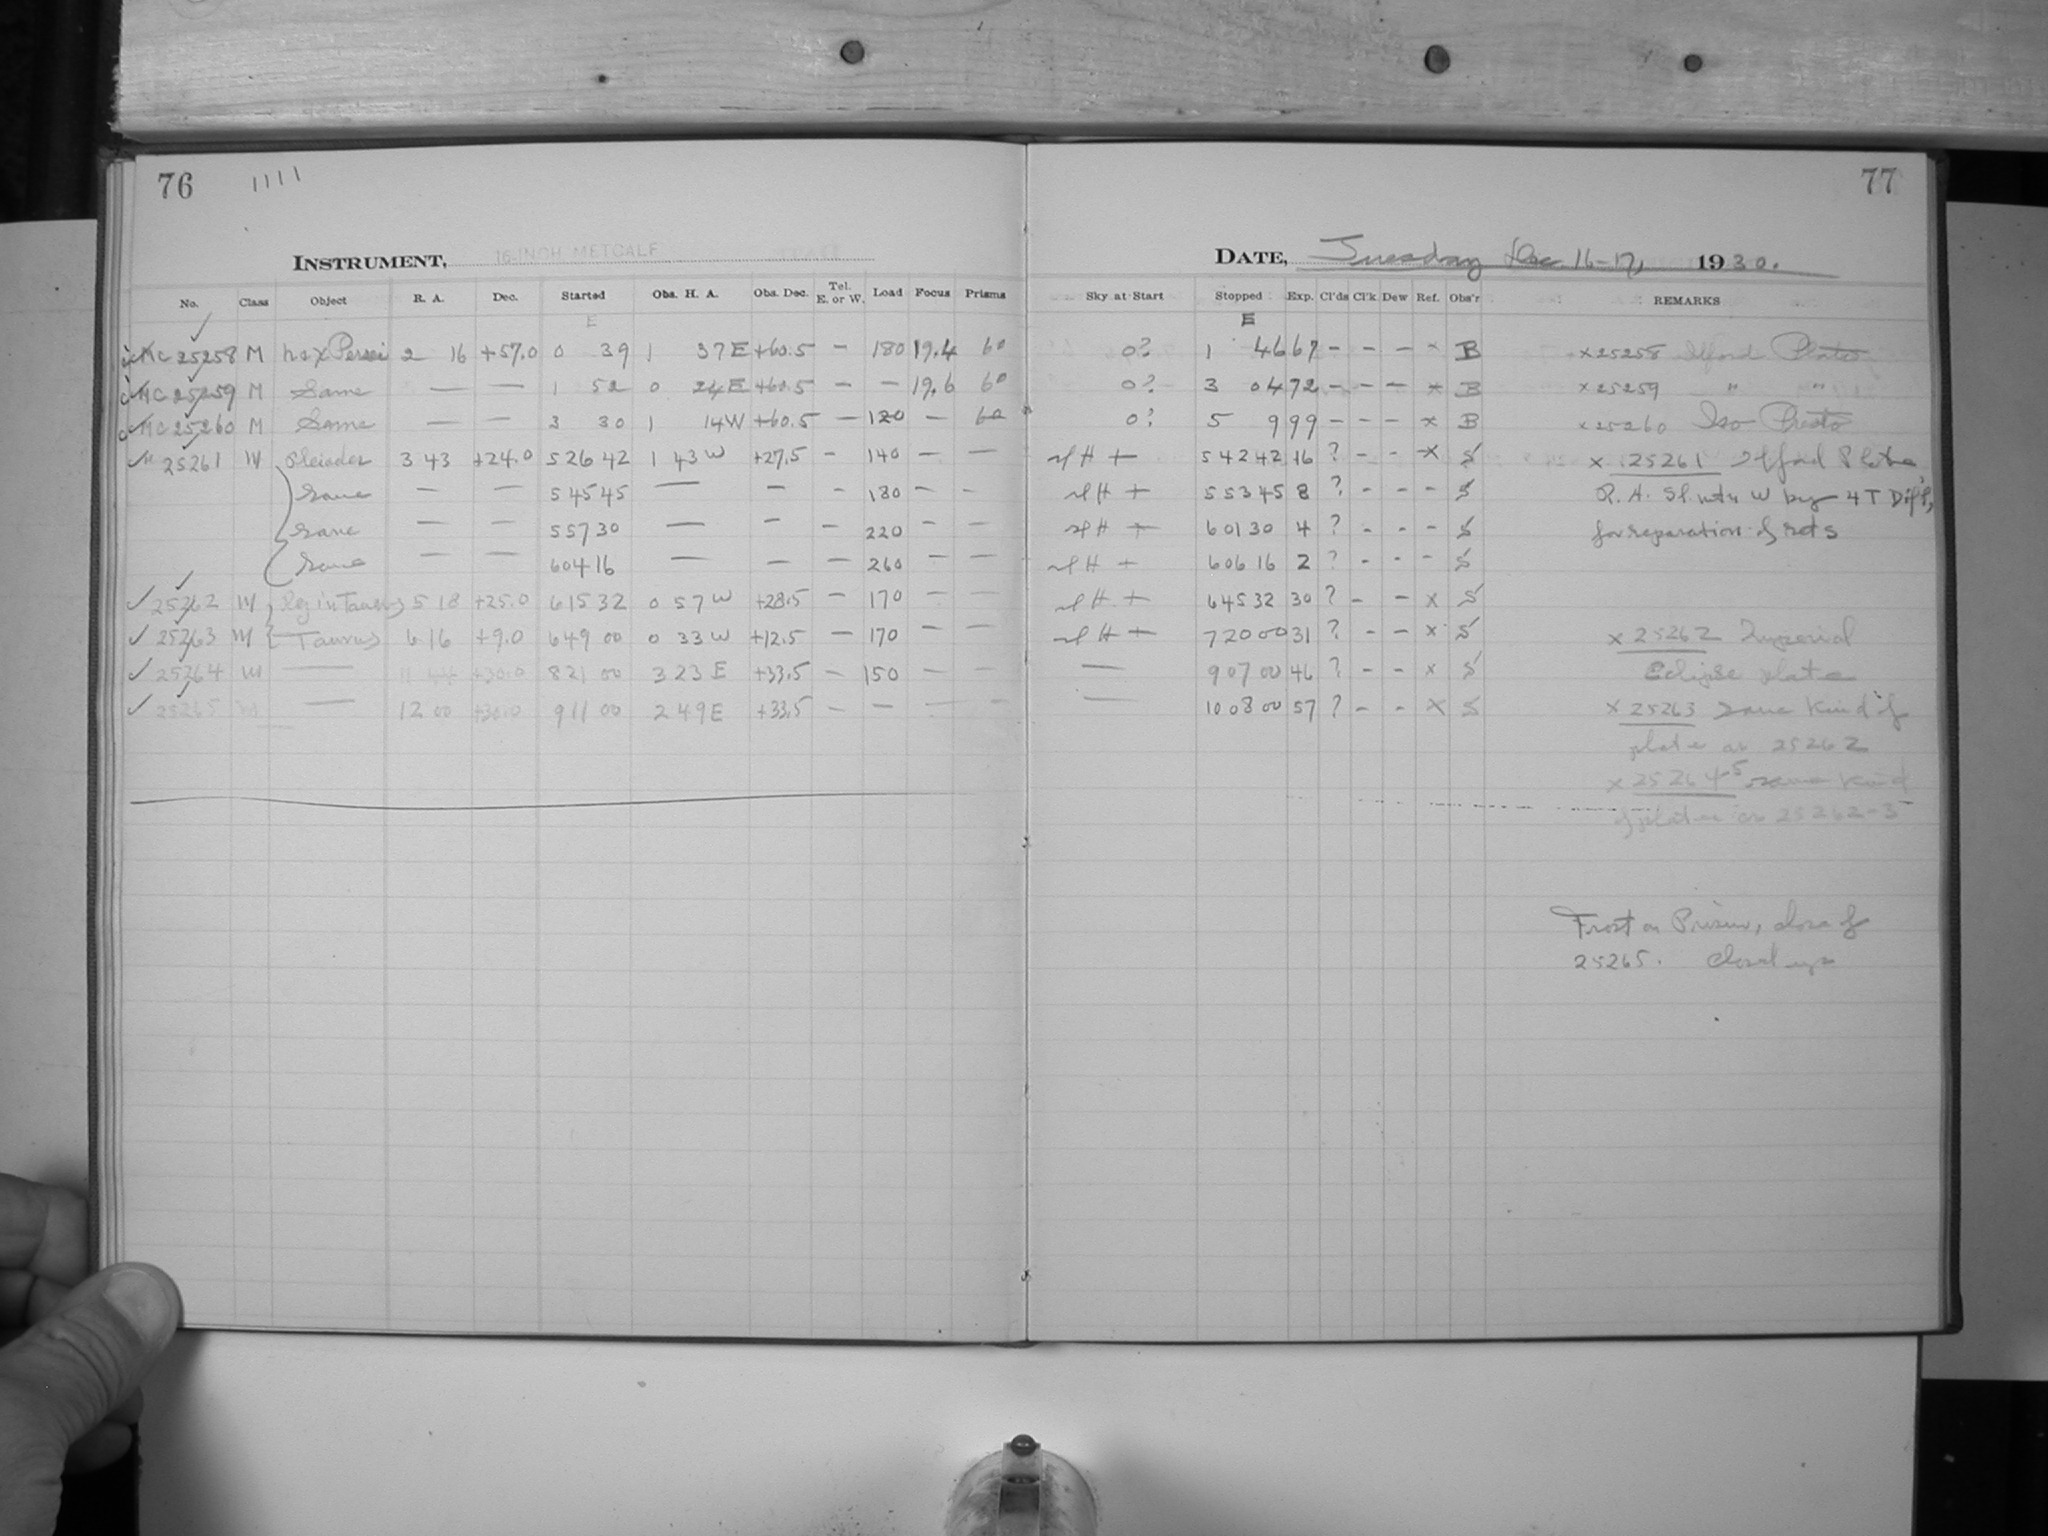 76 1111
77
INSTRUMENT, 16-INCH METCALF
DATE, Tuesday Dec. 16-17, 1930.
No. Class Object R. A. Dec. Started Obs. H. A. Obs. Dec. Tel. E. or W. Load Focus Prisms Sky at Start Stopped Exp. Cl'ds Cl'k Dew Ref. Obs'r REMARKS
E E
MC 25258 M h & χ Persei 2 16 +57.0 0 39 1 37 E +60.5 - 180 19.4 6° 0? 1 46 67 - - - × B × 25258 Ilford
MC 25259 M Same — — 1 52 0 24 E +60.5 - - 19.6 6° 0? 3 04 72 - - - × B × 25259 " "
MC 25260 M Same — — 3 30 1 14 W +60.5 - 120 - 6° 0? 5 9 99 - - - × B × 25260 Iso
" 25261 M Pleiades 3 43 +24.0 5 26 42 1 43 W +27.5 - 140 - - H + 5 42 42 16 ? - - × S × 25261 Ilford Plate
Same — — 5 45 45 — - - 180 - - H + 5 53 45 8 ? - - - S R. A. W by 4 T
Same — — 5 57 30 — - - 220 - - H + 6 01 30 4 ? - - - S for separation of sets
Same — — 6 04 16 — - - 260 - - H + 6 06 16 2 ? - - - S
25262 M Reg in Taurus 5 18 +25.0 6 15 32 0 57 W +28.5 - 170 - - H + 6 45 32 30 ? - - × S
25263 M Taurus 6 16 +9.0 6 49 00 0 33 W +12.5 - 170 - - H + 7 20 00 31 ? - - × S × 25262 Imperial
25264 M — +30.0 8 21 00 3 23 E +33.5 - 150 - - — 9 07 00 46 ? - - × S Eclipse plate
25265 M — 12 00 +30.0 9 11 00 2 49 E +33.5 - - - - — 10 08 00 57 ? - - × S × 25263 same kind of
plate as 25262
× 25264 5 same kind
of plate as 25262-3
Frost on Prism, close of
25265. Closed up